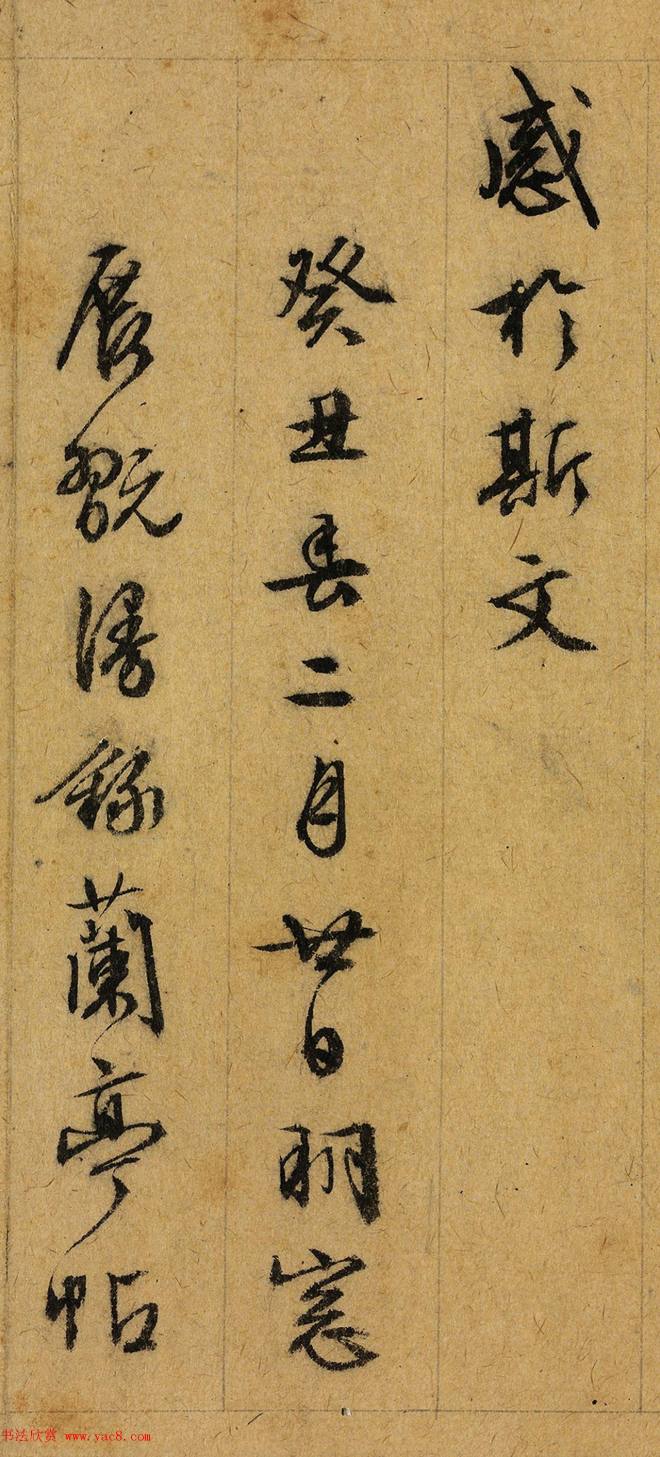 感於斯文
癸丑春二月廿日明窓
展翫漫錄蘭亭帖
书法欣赏 www.yac8.com